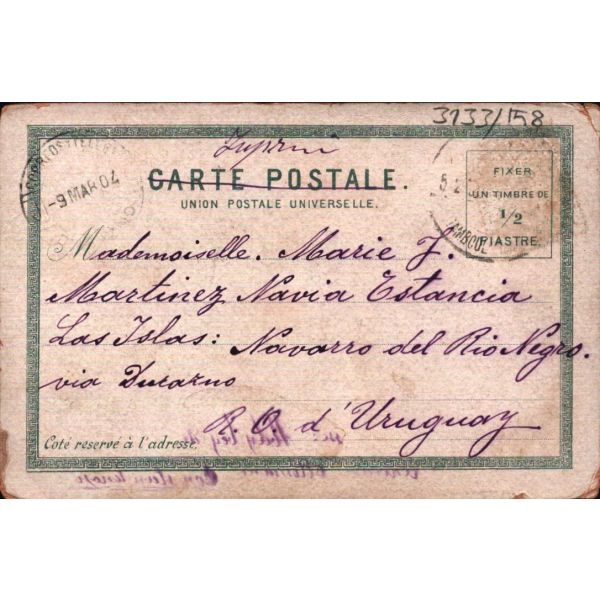 3133/158
CARTE POSTALE.
UNION POSTALE UNIVERSELLE.
FIXER
UN TIMBRE DE
1/2
PIASTRE.
-9 MAR 04
Mademoiselle. Marie J.
Martinez Navia Estancia
Las Islas: Navarro del Rio Negro.
via Durazno
R. O. d'Uruguay
Coté réservé à l'adresse.